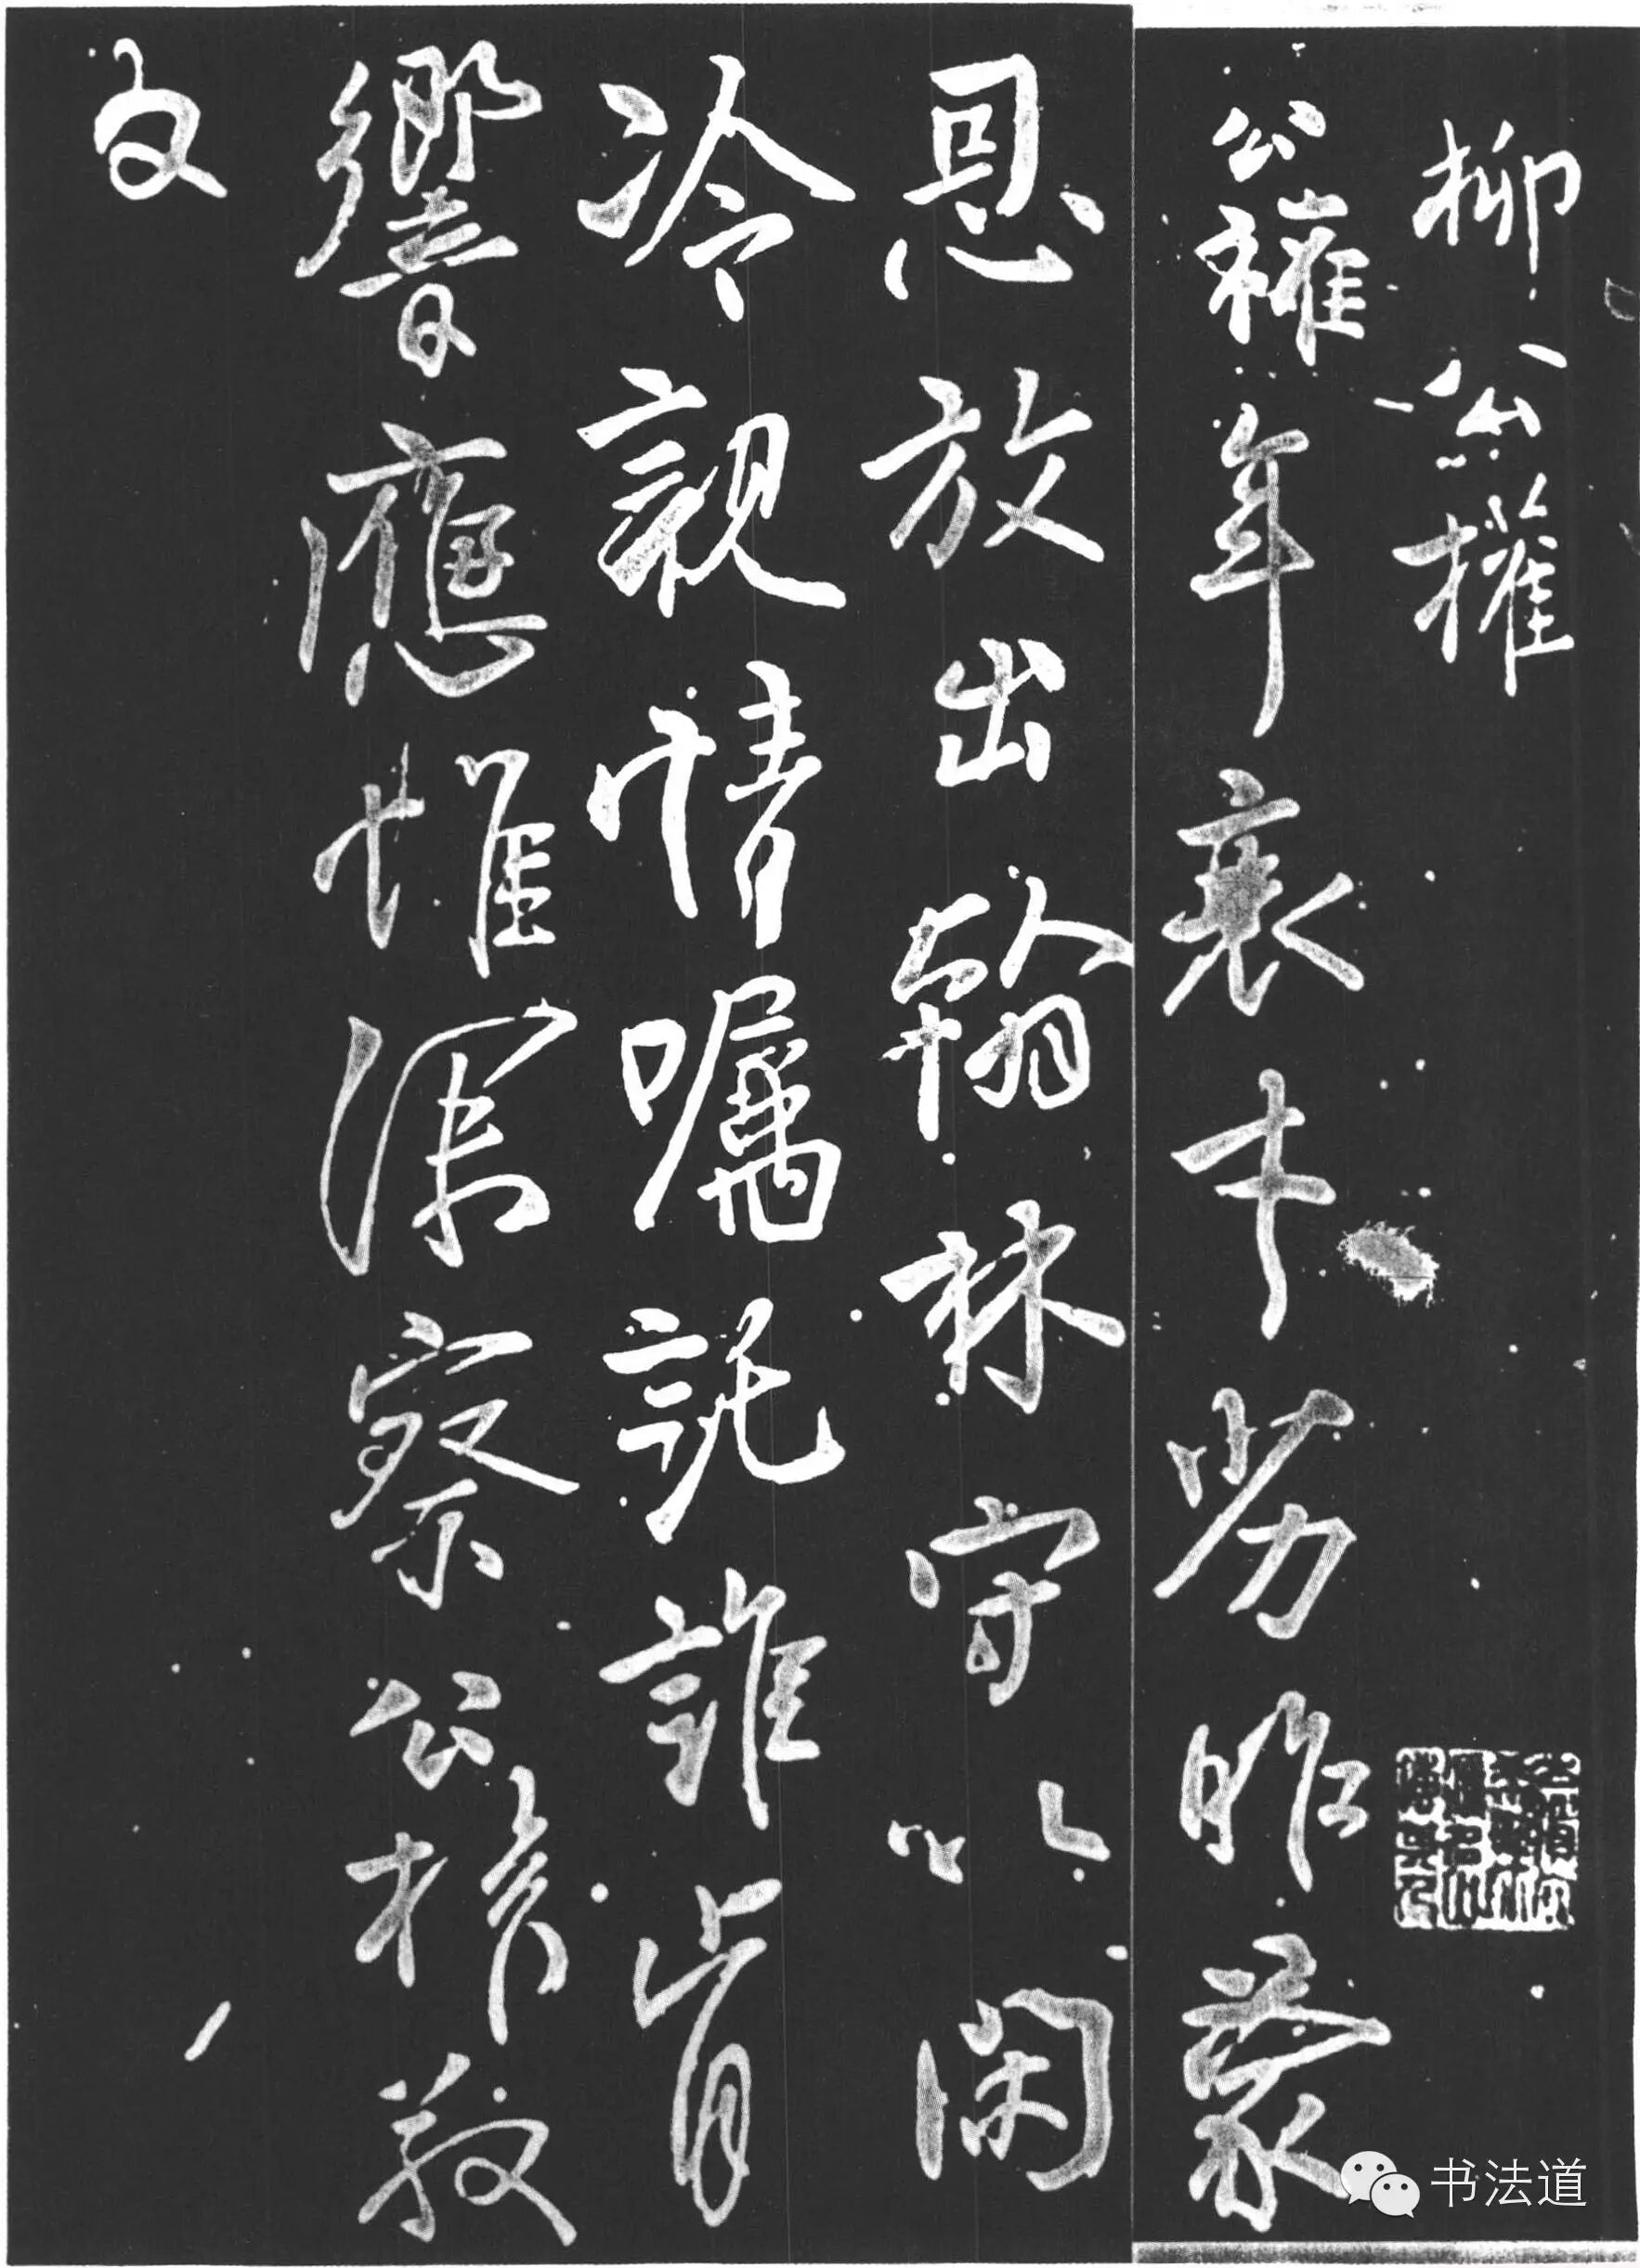 柳公權
公權年衰才劣昨蒙
恩放出翰林守以閑
冷親情囑託誰肯
響應惟深察公權敬
白
书法道